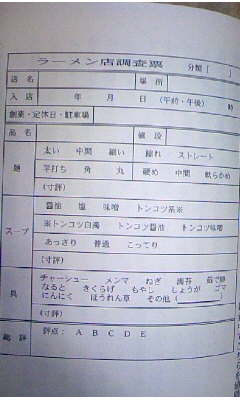 ラーメン店調査票 分類[ ]
店名 場所
入店 年 月 日 (午前・午後) 時
創業・定休日・駐車場
品名 値段
麺 太い 中間 細い 縮れ ストレート
平打ち 角 丸 硬め 中間 軟らかめ
(寸評)
スープ 醤油 塩 味噌 トンコツ系※
※トンコツ白濁 トンコツ醤油 トンコツ味噌
あっさり 普通 こってり
(寸評)
具 チャーシュー メンマ ねぎ 海苔 茹で卵
なると きくらげ もやし しょうが ゴマ
にんにく ほうれん草 その他( )
(寸評)
総評 評点: A B C D E